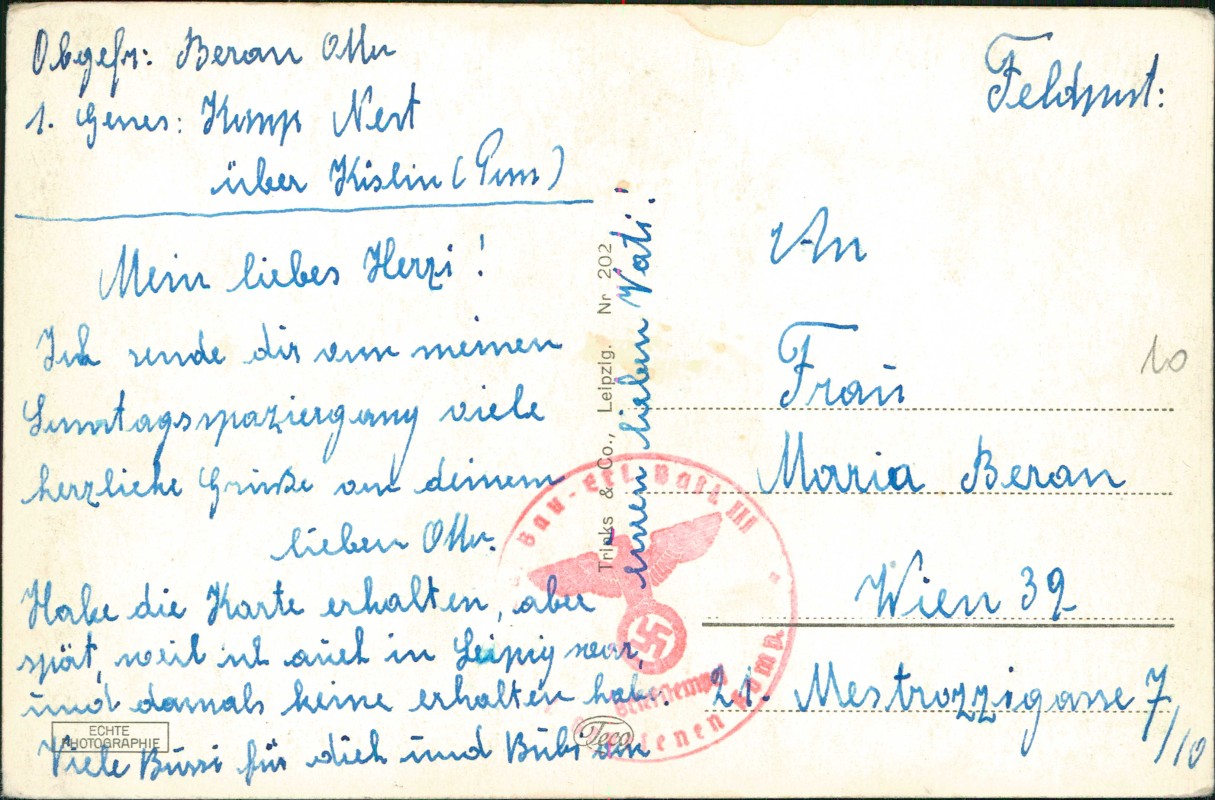 Obgefr: Beran Otto
1. Genes: Komp Nest
über Köslin (Pom)
Mein liebes Herzi!
Ich sende dir von meinen
Sonntagsspaziergang viele
herzliche Grüße von deinem
lieben Otto.
Habe die Karte erhalten, aber
spät, weil ich auch in Leipzig war,
und damals keine erhalten habe.
Viele Bussi für dich und Bubi von
euren lieben Vati!
ECHTE
PHOTOGRAPHIE
Trinks & Co., Leipzig. Nr 202
Teco
Feldpost:
An
Frau
Maria Beran
Wien 39
21. Mestrozzigasse 7/10
10
Bau-Ers. Batl. III
Briefstempel
Genesenen Komp.